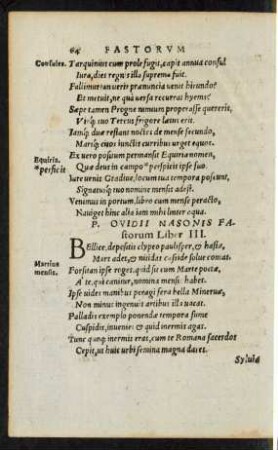 64 FASTORVM
Consules. Tarquinius cum prole fugit, capit annua consul
Iura, dies regnis illa suprema fuit.
Fallimur? an veris prænuncia venit hirundo?
Et metuit, ne qua versa recurrat hyems?
Sæpe tamen Progne nimium properasse quereris,
Virq́; tuo Tereus frigore lætus erit.
Iamq́; duæ restant noctes de mense secundo,
Marsq́; citos iunctis curribus urget equos.
Equiria. Ex vero positum permansit Equiria nomen,
*perspicit Quæ deus in campo* perspicit ipse suo.
Iure venis Gradiue, locum tua tempora poscunt,
Signatusq́; tuo nomine mensis adest.
Venimus in portum, libro cum mense peracto,
Nauiget hinc alia iam mihi linter aqua.
P. OVIDII NASONIS FA-
storum Liber III.
Martius mensis. BEllice, depositis clypeo paulisper, & hasta,
Mars ades, & nitidas casside solue comas.
Forsitan ipse roges, quid sit cum Marte poëtæ,
A te, qui canitur, nomina mensis habet.
Ipse vides manibus peragi fera bella Mineruæ,
Non minus ingenuis artibus illa vacat.
Palladis exemplo ponendæ tempora sume
Cuspidis, inuenies & quid inermis agas.
Tunc quoq́; inermis eras, cum te Romana sacerdos
Cepit, ut huic urbi semina magna dares.
Syluia